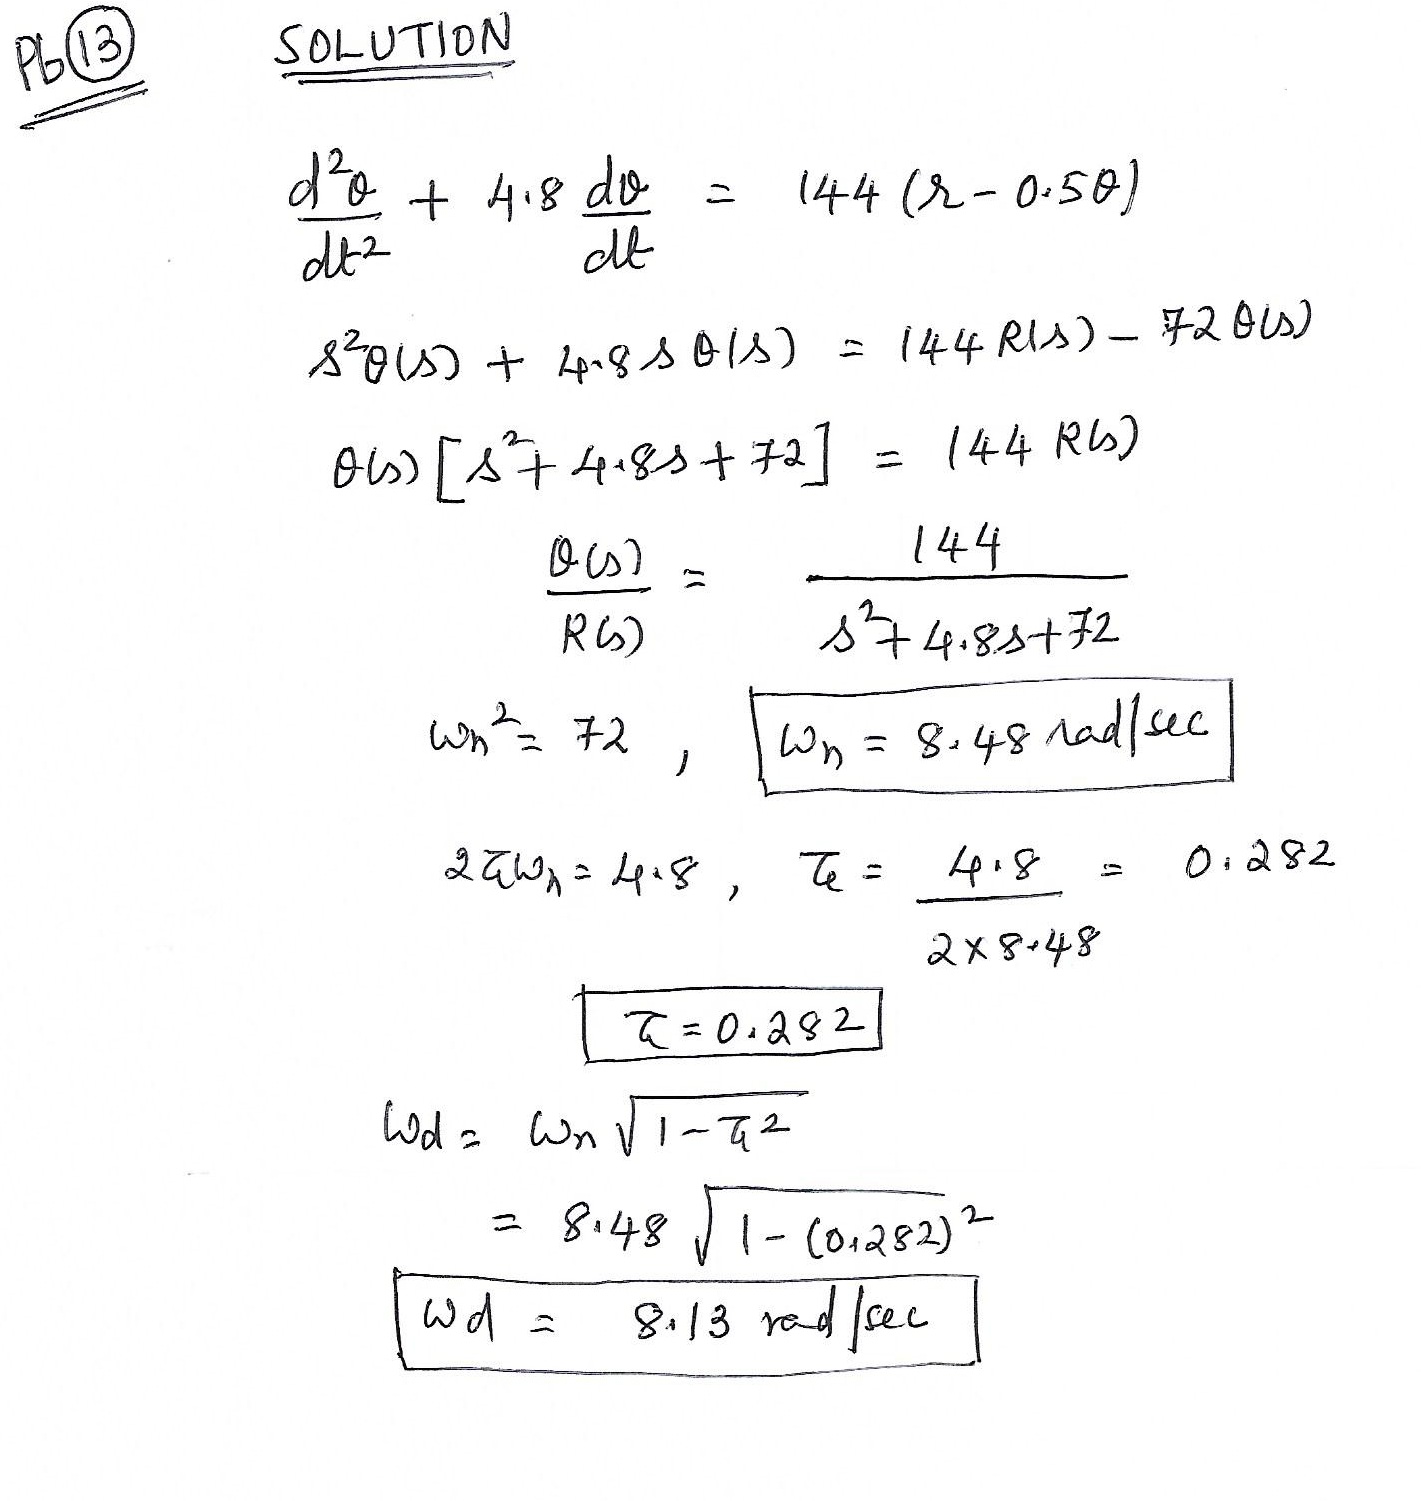 Pb 13
SOLUTION
d²θ/dt² + 4.8 dθ/dt = 144 (r - 0.5θ)
s²θ(s) + 4.8 s θ(s) = 144 R(s) - 72 θ(s)
θ(s) [s² + 4.8s + 72] = 144 R(s)
θ(s)/R(s) = 144/(s² + 4.8s + 72)
ωn² = 72 , ωn = 8.48 rad/sec
2ξωn = 4.8 , ξ = 4.8/(2×8.48) = 0.282
ξ = 0.282
ωd = ωn √(1-ξ²)
= 8.48 √(1-(0.282)²)
ωd = 8.13 rad/sec